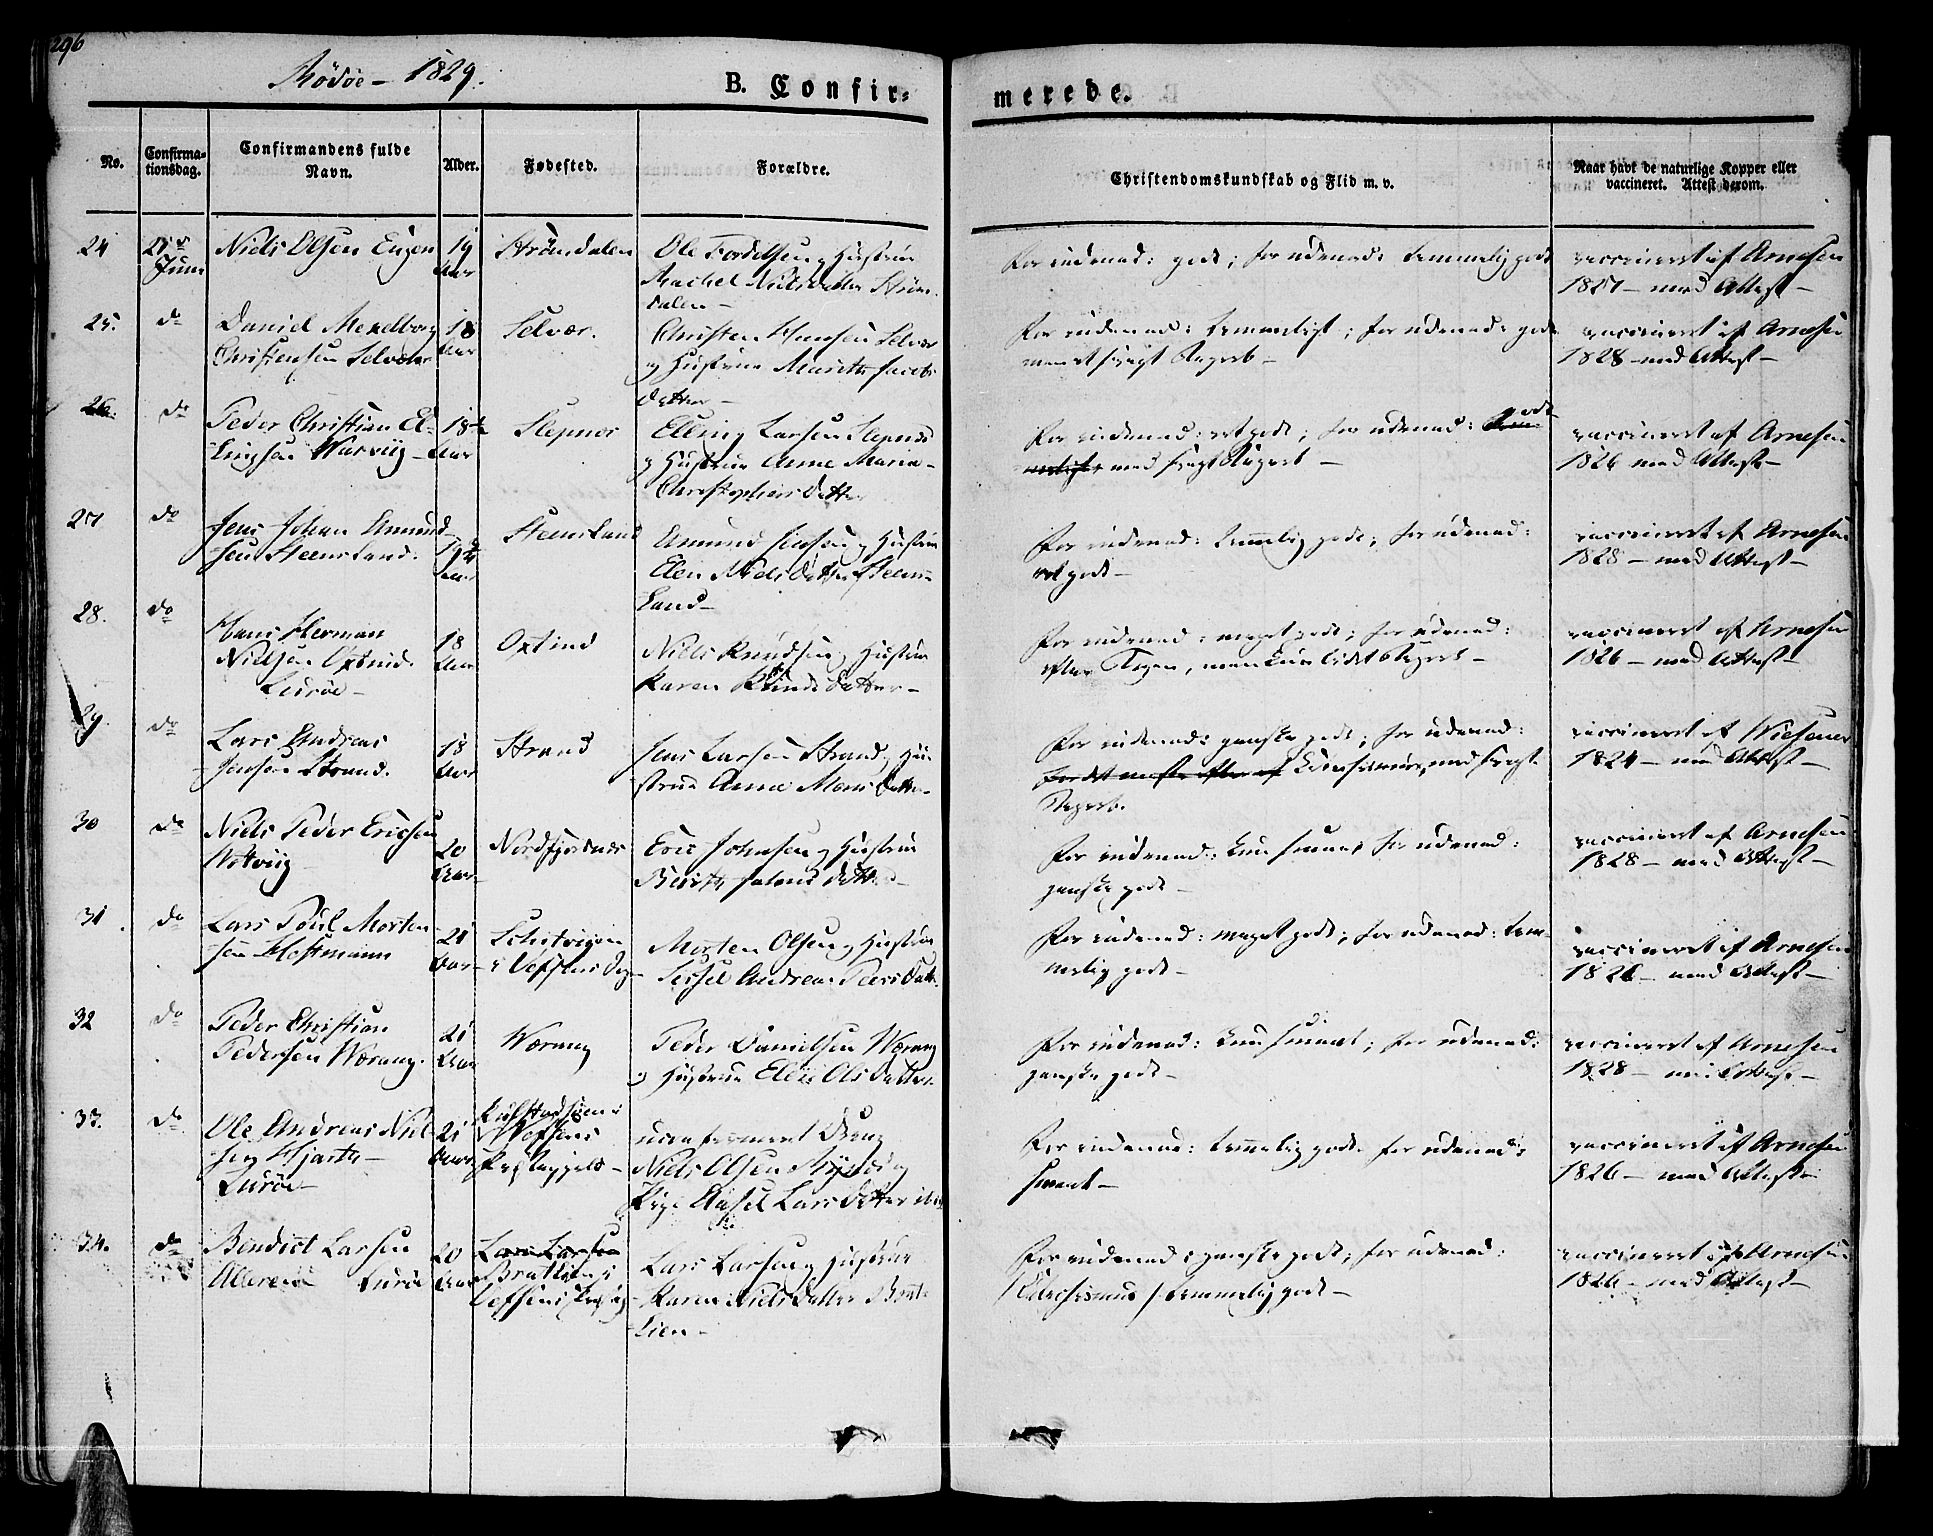 296
Rödöe - 1829.
B. Confir=
merede.
No.
Confirma-
tionsdag.
Confirmandens fulde
Navn.
Alder.
Fødested.
Forældre.
Christendomskundskab og Flid m. v.
Naar havt de naturlige Kopper eller
vaccineret. Attest derom.
24
Juni
Niels Olsen Eugen
19
Aar
Strömdalen
Ole Hustrue
Rachel Nielsdatter Ström-
dalen -
For indenad: godt; for udenad: temmelig godt
vaccineret af Arnesen
1827 - med Attest -
25.
do
Daniel
Christensen Selvær
18
Aar
Selvær.
Christen Hansen Selvær
og Hustrue Marith Jacobs
datter -
For indenad: temmeligt; for udenad: godt
vaccineret af Arnesen
1828 - med Attest -
26.
do
Peder Christian El-
lingsen
18½
Aar
Slepnes
Elling Larsen Slepnes
og Hustrue Anne Maria -
Christophersdatter
For indenad: ret godt; for udenad: godt
med svagt Begreb -
vaccineret af Arnesen
1826 med Attest -
27
do
Jens Johan Amund-
sen Steensland.
Aar
Steensland
Amund Jensen og Hustrue
Elen Nielsdatter Steens-
land -
For indenad: temmelig godt; for udenad:
ret godt -
vaccineret af Arnesen
1828 - med Attest -
28.
do
Hans Herman
Nielsen Oxtind.
Luröe -
18
Aar
Oxtind
Niels Knudsen og Hustrue
Karen Knudsdatter -
For indenad: meget godt; for udenad:
efter Bogen, men kun lidet Begreb -
vaccineret af Arnesen
1826 - med Attest -
29.
do
Lars Andreas
Jensen Strand.
18
Aar
Strand
Jens Larsen Strand og Hu-
strue Anne Monsdatter -
For indenad: ganske godt; for udenad:
med svagt
Begreb.
vaccineret af Wiesener
1824 - med Attest -
30
do
Niels Peder Ericsen
20
Aar
Nordfjordnes
Eric Johnsen og Hustrue
Berith
For indenad: kun smaat, for udenad:
ganske godt -
vaccineret af Arnesen
1828 - med Attest -
31.
do
Lars Poul Morten-
sen Hestmann
21
Aar
Morten Olsen og Hustrue
Sissel Andrea Peersdatt.
For indenad: meget godt; for udenad: tem-
melig godt -
vaccineret af Arnesen
1826 - med Attest -
32
do
Peder Christian
Pedersen Wærang.
21
Aar
Wærang
Peder Danielsen Wærang
og Hustrue Olsdatter
For indenad: kun smaat; for udenad:
ganske godt -
vaccineret af Arnesen
1828 - med Attest -
33.
do
Ole Andreas Niel-
sen Hjarth -
Luröe -
21
Aar
Vefsens
Præstegjeld -
Dreng
Niels Olsen og
Pige Larsdatter
For indenad: temmelig godt. for udenad:
smaat -
vaccineret af Arnesen
1826 - med Attest -
34.
do
Bendict Larsen
Luröe
20
Aar
Lars Larsen
Bratlien i
Lars Larsen og Hustrue
Karen Nielsdatter Brat-
lien -
For indenad: ganske godt; for udenad:
temmelig godt -
vaccineret af Arnesen
1826 - med Attest -